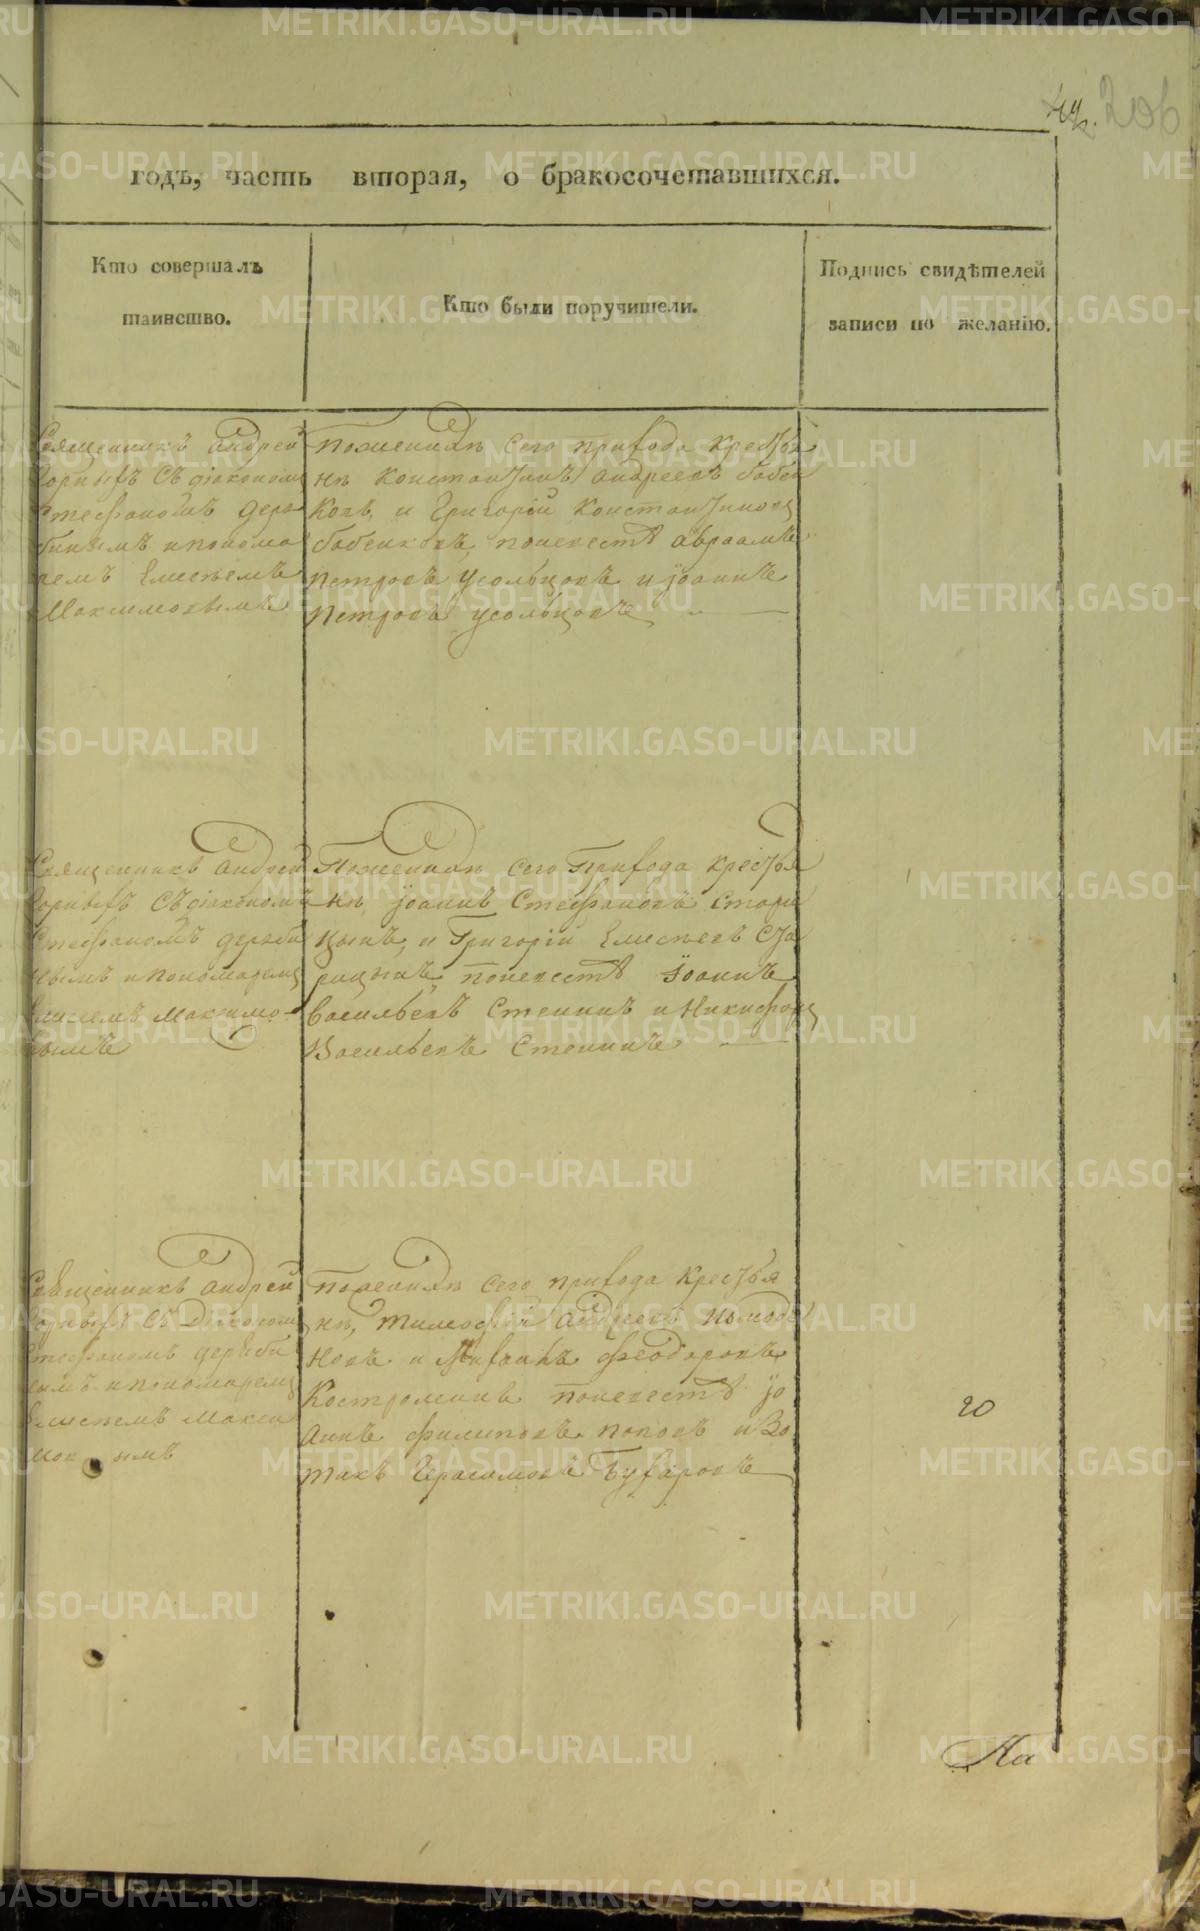 206
годъ, часть вторая, о бракосочетавшихся.
Кто совершалъ
таинство.
Кто были поручители.
Подпись свидѣтелей
записи по желанію.
Священникъ Андрей
Горныхъ Съ діакономъ
Стефаномъ Деря
бинымъ и понома
ремъ Елисеемъ
Максимовымъ
Поженихѣ сего прихода крестья
нѣ Константинъ Андреевъ бабен
ковъ, и Григорій Константиновъ
бабенковъ, поневестѣ Авраамъ
Петровъ Усольцовъ и Іоаннъ
Петровъ Усольцовъ
Священникъ Андрей
Горныхъ Съ діакономъ
Стефаномъ деряби
нымъ и пономаремъ
Елисеемъ Максимо
вымъ
Поженихѣ сего Прихода крестья
нѣ, Іоаннъ Стефановъ Стари
цынъ, и Григорій Елисеевъ Ста
рицынъ, поневестѣ Іоаннъ
Васильевъ Стенинъ и Никифоръ
Васильевъ Стенинъ
Священникъ Андрей
Горныхъ Съ Діакономъ
Стефаномъ деряби
нымъ и пономаремъ
Елисеемъ Макси
мовымъ
Поженихѣ сего прихода крестья
нѣ, Тимофей Андреевъ
новъ и Михаилъ Феодоровъ
Костроминъ поневестѣ Іо
аннъ Филиповъ Поповъ и Во
тихъ Герасимовъ Бухаровъ
20
На
METRIKI.GASO-URAL.RU